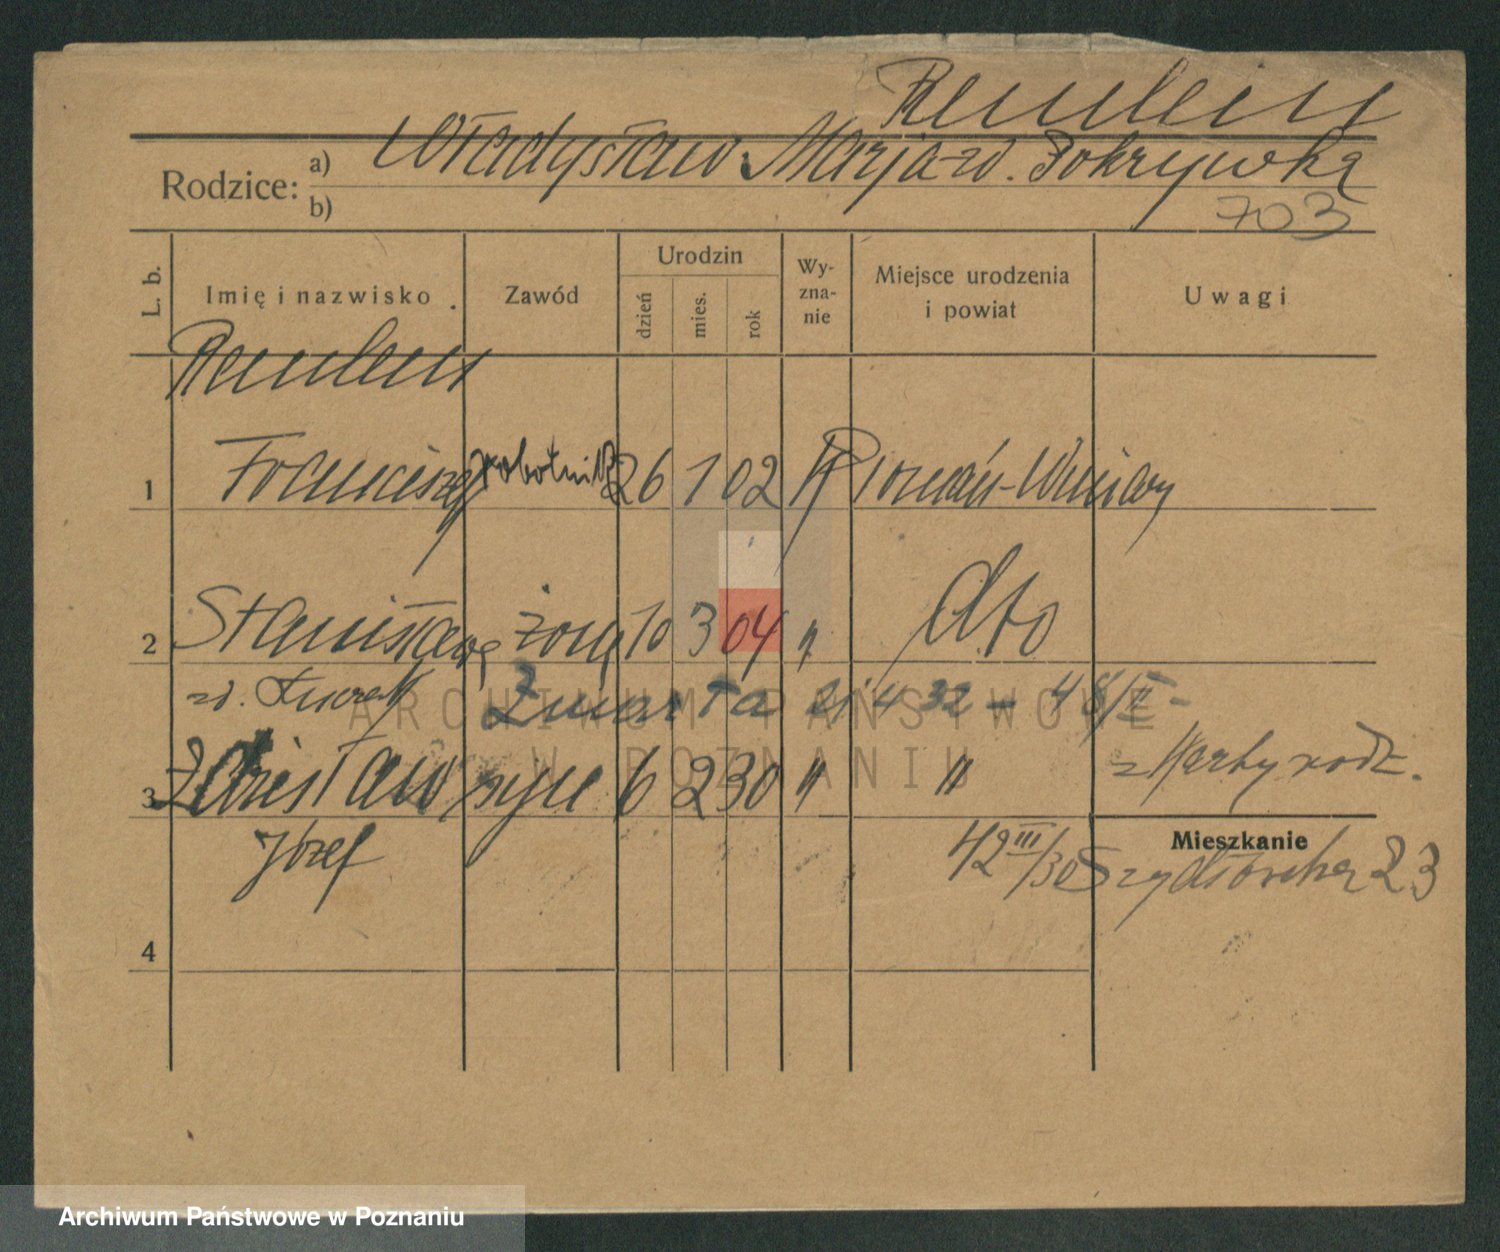 Remlein
Rodzice: a) Władysław. Marja zd. Pokrywka
b)
703
L. b.
Imię i nazwisko
Zawód
Urodzin
dzień
mies.
rok
Wy-
zna-
nie
Miejsce urodzenia
i powiat
Uwagi
Remlein
1 Franciszek robotnik 26 1 02 rk Poznań-Winiary
2 Stanisława żona 10 3 04 " dto
zd. Zmarła 21 4 32 -
ARCHIWUM PAŃSTWOWE
W POZNANIU
z karty rodz.
3 Zdzisław syn 6 2 30 " "
Józef
42 III/30
Mieszkanie
Szydłowska 23
4
Archiwum Państwowe w Poznaniu